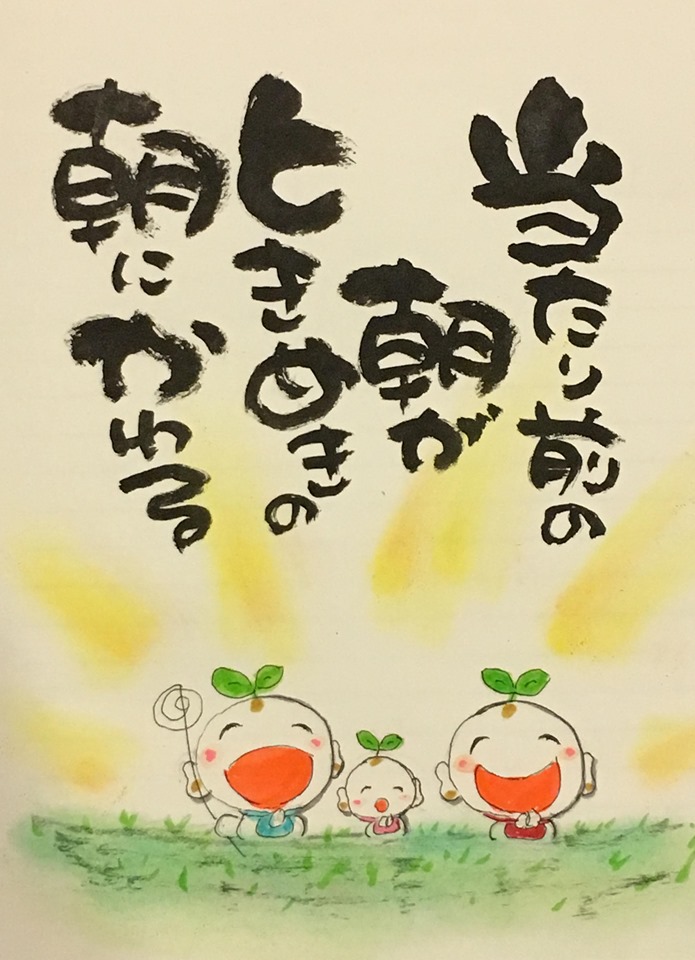 当たり前の
朝が
ときめきの
朝に
かわる